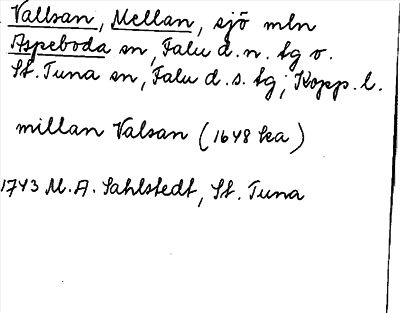 Vallsan, Mellan, sjö mln
Aspeboda sn, Falu d. n. tg o.
St. Tuna sn, Falu d. s. tg; Kopp. l.
millan Valsan (1648 ka)
1743 M. A. Sahlstedt, St. Tuna